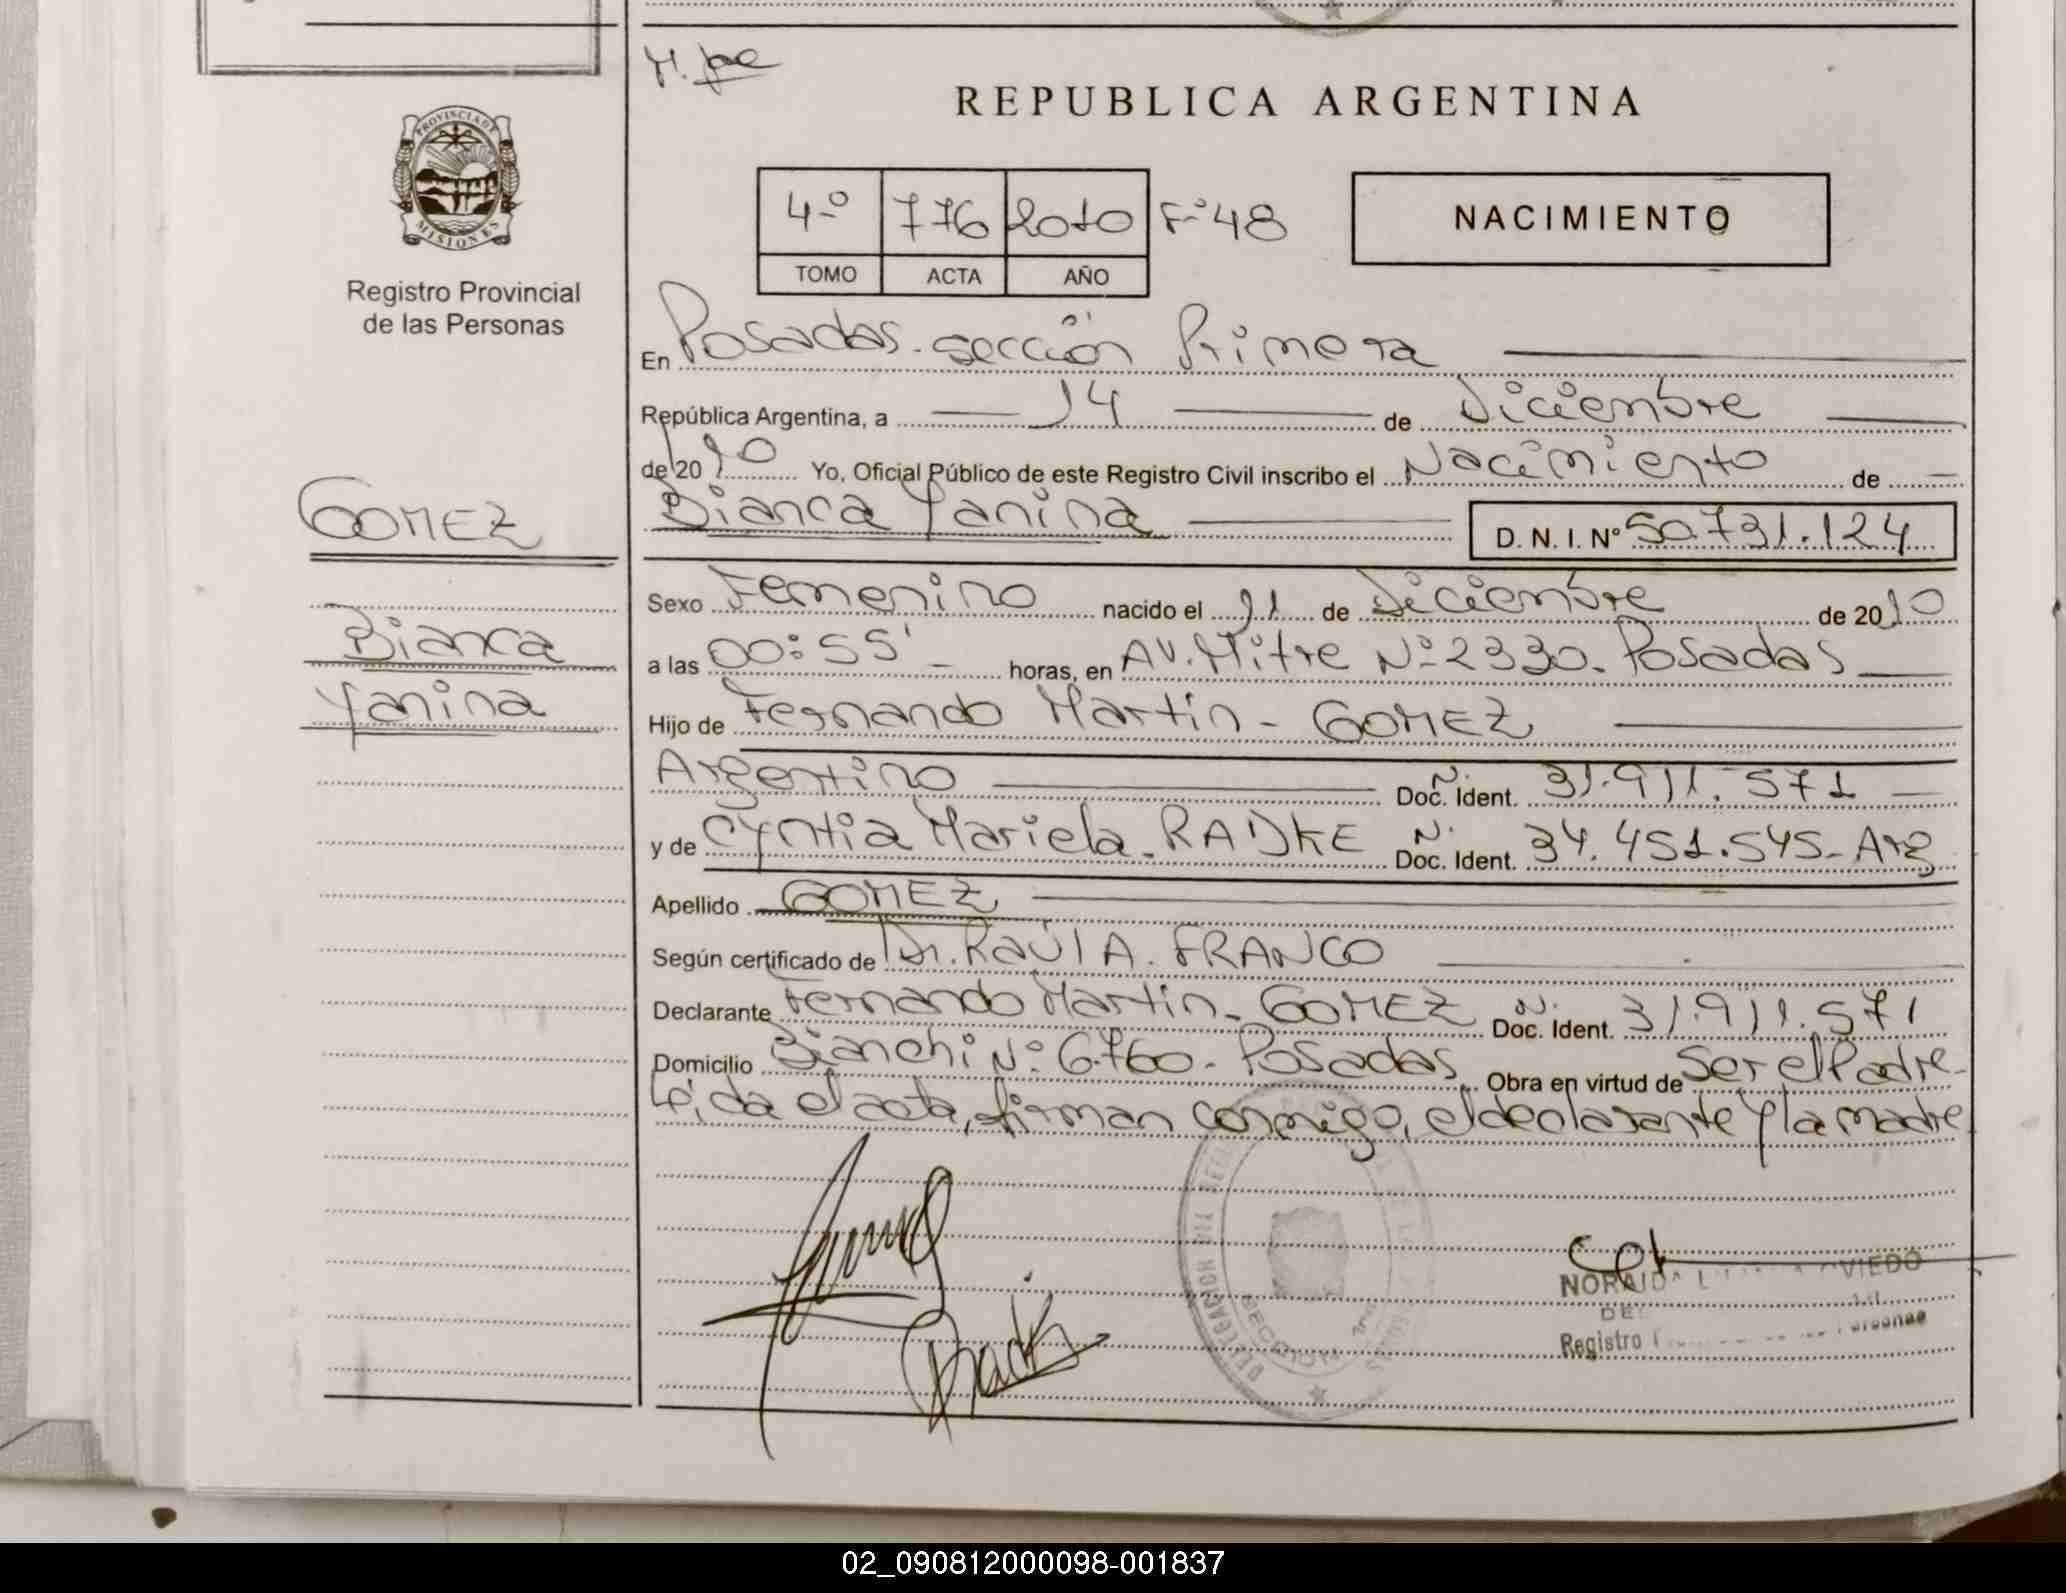 REPUBLICA ARGENTINA
PROVINCIA DE
MISIONES
Registro Provincial
de las Personas
4-º 776 2010 Fº 48
TOMO ACTA AÑO
NACIMIENTO
En Posadas. sección Primera
República Argentina, a 14 de Diciembre
de 2010 Yo, Oficial Público de este Registro Civil inscribo el Nacimiento de
GOMEZ
Bianca Yanina D. N. I. Nº 50.731.124
Sexo Femenino nacido el 11 de Diciembre de 2010
Bianca
a las 00:55' horas, en AV. Mitre Nº 2330. Posadas
Yanina
Hijo de Fernando Martin - GOMEZ
Argentino Doc. Ident. Nº 31.911.571
y de Cyntia Mariela. RADKE Doc. Ident. Nº 34.451.545- Arg
Apellido GOMEZ
Según certificado de Dr. RAÚl A. FRANCO
Declarante Fernando Martin. GOMEZ Doc. Ident. Nº 31.911.571
Domicilio Bianchi Nº 6760. Posadas Obra en virtud de ser el Padre.
Leída el acta, firman conmigo, el declarante y la madre
DELEGACION
SECCION
NORAIDA OVIEDO
Registro Personas
02_090812000098-001837